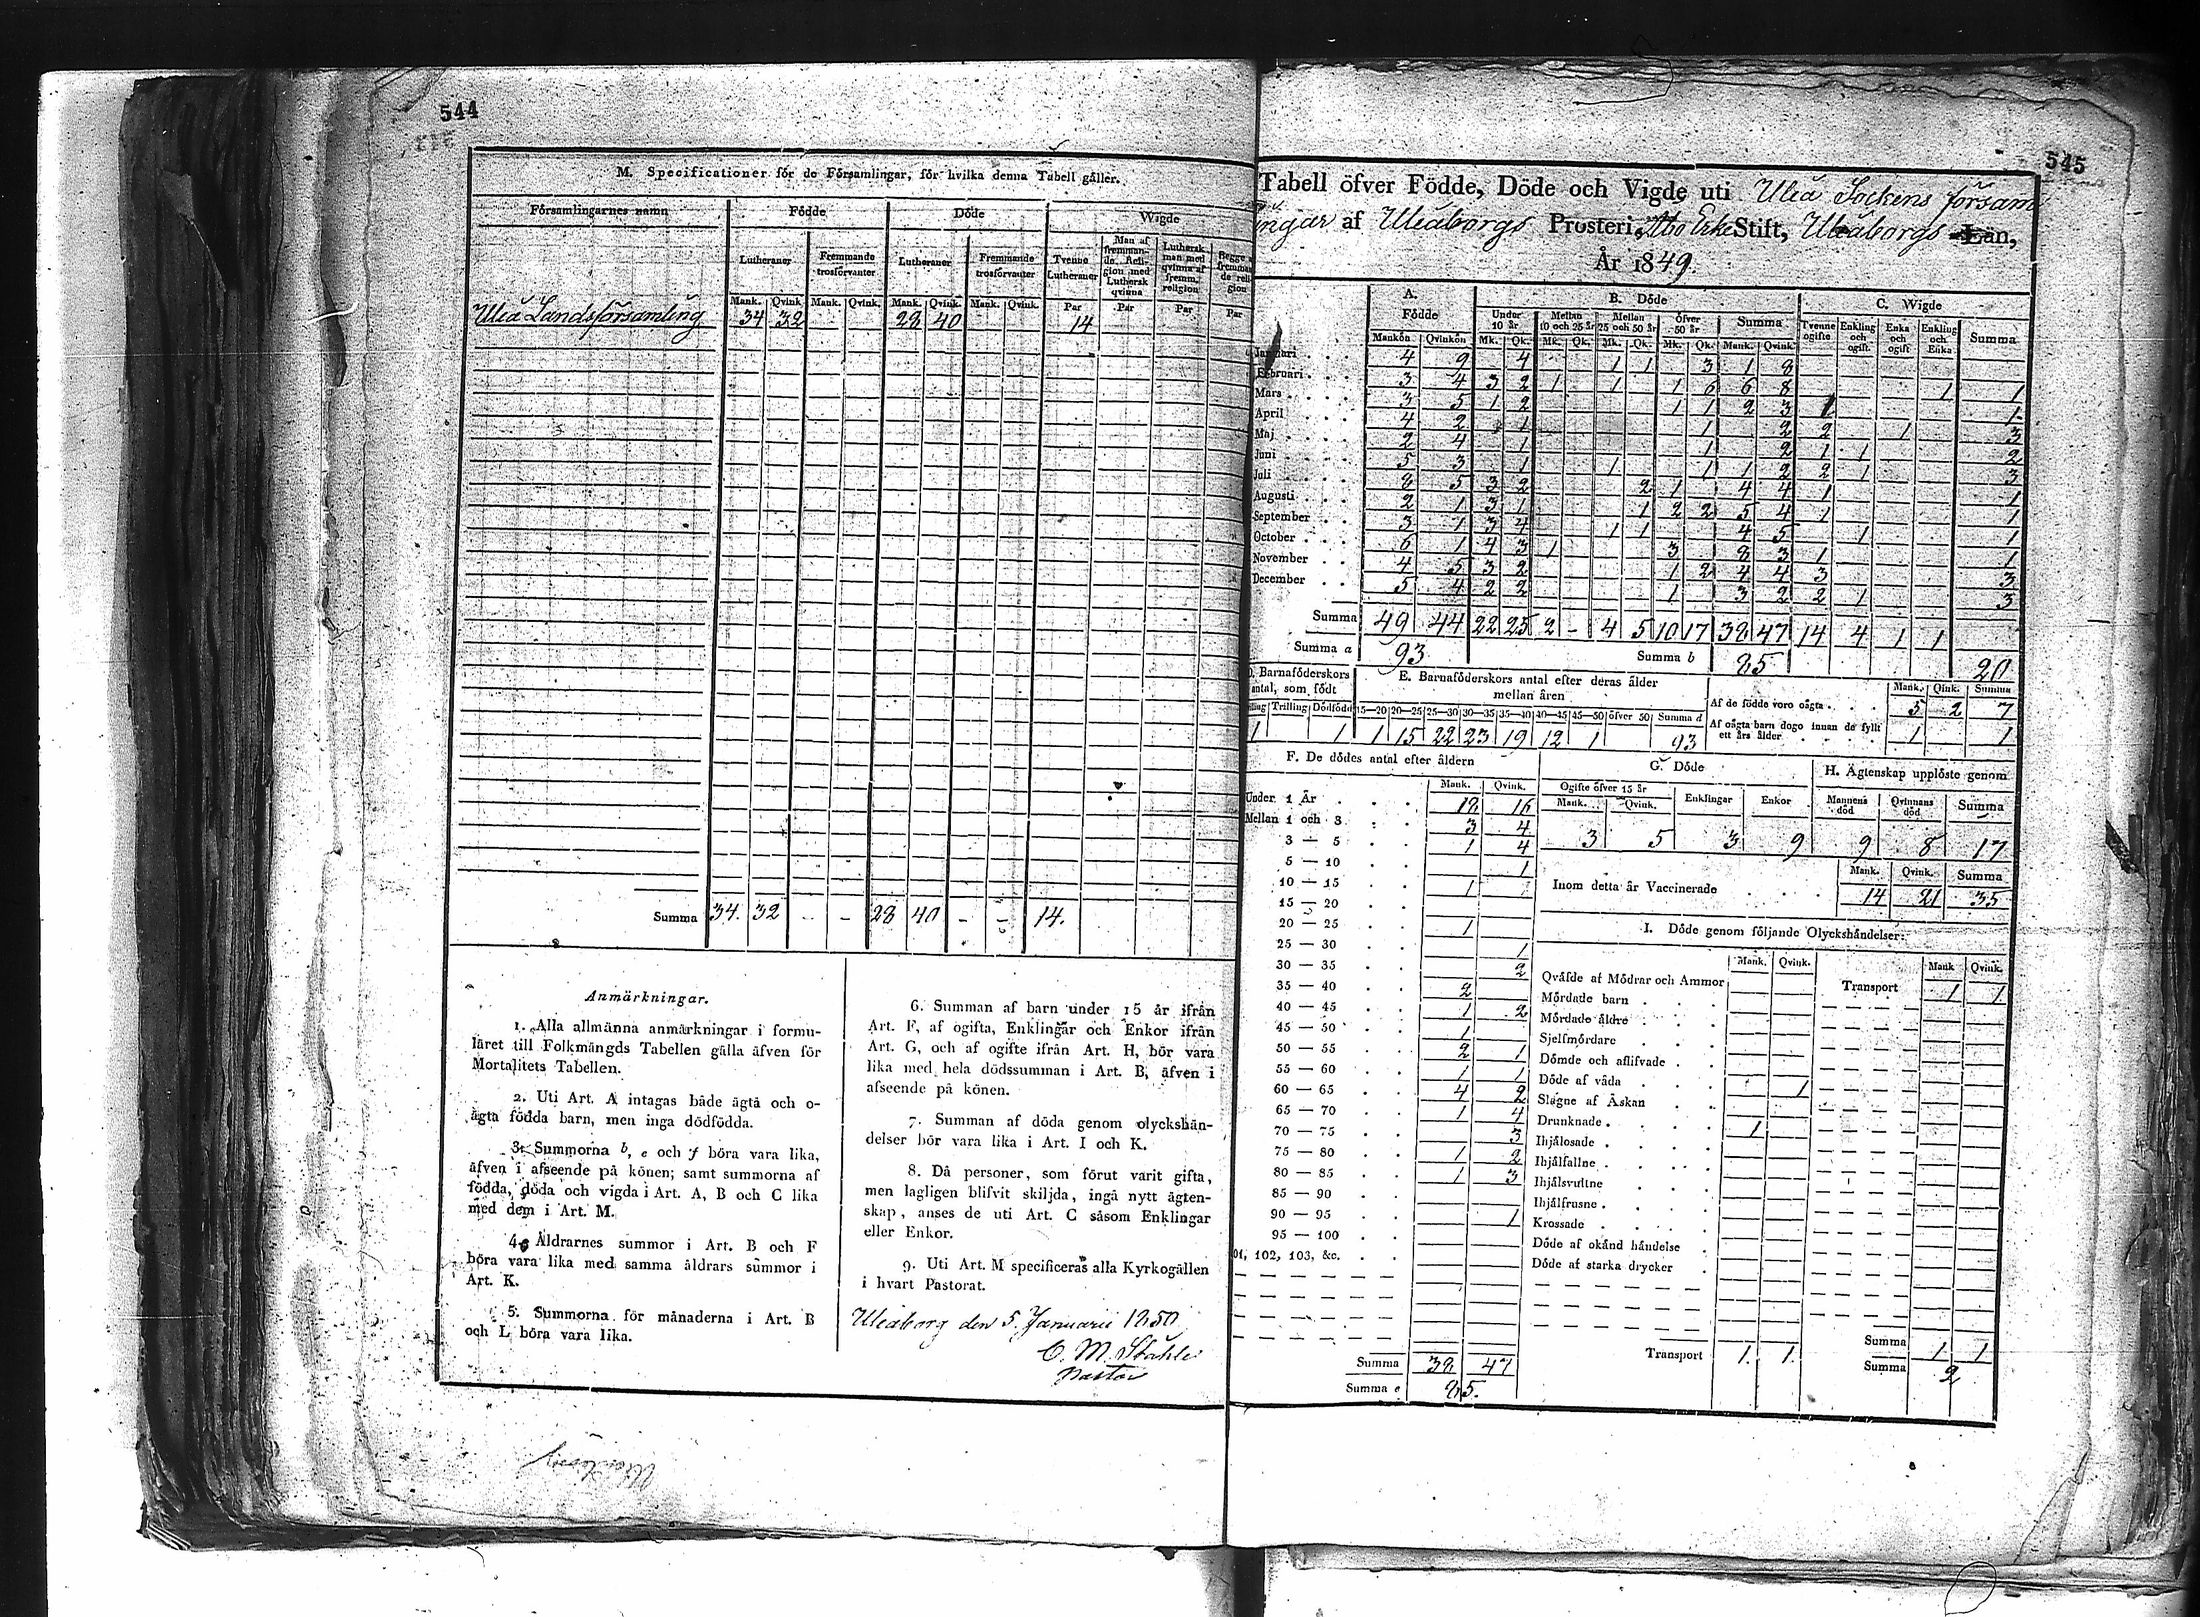 544
M. Specificationer för de Församlingar, för hvilka denna Tabell gäller.
Församlingarnes namn Födde Döde Wigde
Lutheraner Fremmande trosförvanter Lutheraner Fremmande trosförvanter Tvenne Lutheraner Man af fremmande Religion med Luthersk qvinna Luthersk man med qvinna af fremm. religion Begge fremman de reli gion
Mank. Qvink. Mank. Qvink. Mank. Qvink. Mank. Qvink. Par Par Par Par
Uleå Landsförsamling 34 32 28 40 14
Summa 34. 32 - - 28 40 - - 14.
Anmärkningar.
1. Alla allmänna anmärkningar i formu-
läret till Folkmängds Tabellen gälla äfven för
Mortalitets Tabellen.
2. Uti Art. A intagas både ägta och o-
ägta födda barn, men inga dödfödda.
3. Summorna b, e och f böra vara lika,
äfven i afseende på könen; samt summorna af
födda, döda och vigda i Art. A, B och C lika
med dem i Art. M.
4. Åldrarnes summor i Art. B och F
böra vara lika med samma åldrars summor i
Art. K.
5. Summorna för månaderna i Art. B
och L böra vara lika.
6. Summan af barn under 15 år ifrån
Art. F, af ogifta, Enklingar och Enkor ifrån
Art. G, och af ogifte ifrån Art. H, bör vara
lika med hela dödssumman i Art. B, äfven i
afseende på könen.
7. Summan af döda genom olyckshän-
delser bör vara lika i Art. I och K.
8. Då personer, som förut varit gifta,
men lagligen blifvit skiljda, ingå nytt ägten-
skap, anses de uti Art. C såsom Enklingar
eller Enkor.
9. Uti Art. M specificeras alla Kyrkogällen
i hvart Pastorat.
Uleåborg den 5 Januarii 1850
C. M. Ståhle
Pastor
545
Tabell öfver Födde, Döde och Vigde uti Uleå Sockens församl
ingar af Uleåborgs Prosteri, Åbo Erke Stift, Uleåborgs Län,
År 1849.
A. Födde B. Döde C. Wigde
Under 10 år Mellan 10 och 25 år Mellan 25 och 50 år Öfver 50 år Summa Tvenne ogifte Enkling och ogift Enka och ogift Enkling och Enka Summa
Mankön Qvinkön Mk. Qk. Mk. Qk. Mk. Qk. Mk. Qk. Mank. Qvink.
Januari 4 9 4 1 1 3 1 8
Februari 3 4 3 2 1 1 1 6 6 8 1 1
Mars 3 5 1 2 1 1 2 3 1 1
April 4 2 1 1 2 2 1 3
Maj 2 4 1 1 2 1 1 2
Juni 5 3 1 1 1 1 2 2 1 3
Juli 8 5 3 2 2 1 4 4 1 1
Augusti 2 1 3 1 1 2 2 5 4 1 1
September 3 1 3 4 1 1 4 5 1 1
October 6 1 4 3 1 3 8 3 1 1
November 4 5 3 2 1 2 4 4 3 3
December 5 4 2 2 1 3 2 2 1 3
Summa 49 44 22 25 2 - 4 5 10 17 38 47 14 4 1 1
Summa a 93 Summa b 85 20
D. Barnaföderskors antal, som födt
Trilling Dödfödd
1 1
E. Barnaföderskors antal efter deras ålder mellan åren
15—20 20—25 25—30 30—35 35—40 40—45 45—50 öfver 50 Summa d
1 15 22 23 19 12 1 93
Mank. Qink. Summa
Af de födde voro oägta 5 2 7
Af oägta barn dogo innan de fyllt ett års ålder 1 1
F. De dödes antal efter åldern
Mank. Qvink.
Under 1 År 18 16
Mellan 1 och 3 3 4
3 — 5 1 4
5 — 10 1
10 — 15 1
15 — 20
20 — 25 1
25 — 30 1
30 — 35 2
35 — 40 2
40 — 45 1 2
45 — 50 1
50 — 55 2 1
55 — 60 1 1
60 — 65 4 2
65 — 70 1 4
70 — 75 3
75 — 80 1 2
80 — 85 1 3
85 — 90
90 — 95 1
95 — 100
01, 102, 103, &c.
Summa 38 47
Summa e 85.
G. Döde
Ogifte öfver 15 år Enklingar Enkor
Mank. Qvink.
3 5 3 9
H. Ägtenskap upplöste genom
Mannens död Qvinnans död Summa
9 8 17
Mank. Qvink. Summa
Inom detta år Vaccinerade 14 21 35
I. Döde genom följande Olyckshändelser:
Mank. Qvink. Mank Qvink.
Qväfde af Mödrar och Ammor Transport 1 1
Mördade barn
Mördade äldre
Sjelfmördare
Dömde och aflifvade
Döde af våda 1
Slagne af Åskan
Drunknade 1
Ihjälosade
Ihjälfallne
Ihjälsvultne
Ihjälfrusne
Krossade
Döde af okänd händelse
Döde af starka drycker
Transport 1. 1. Summa 1 1
Summa 2